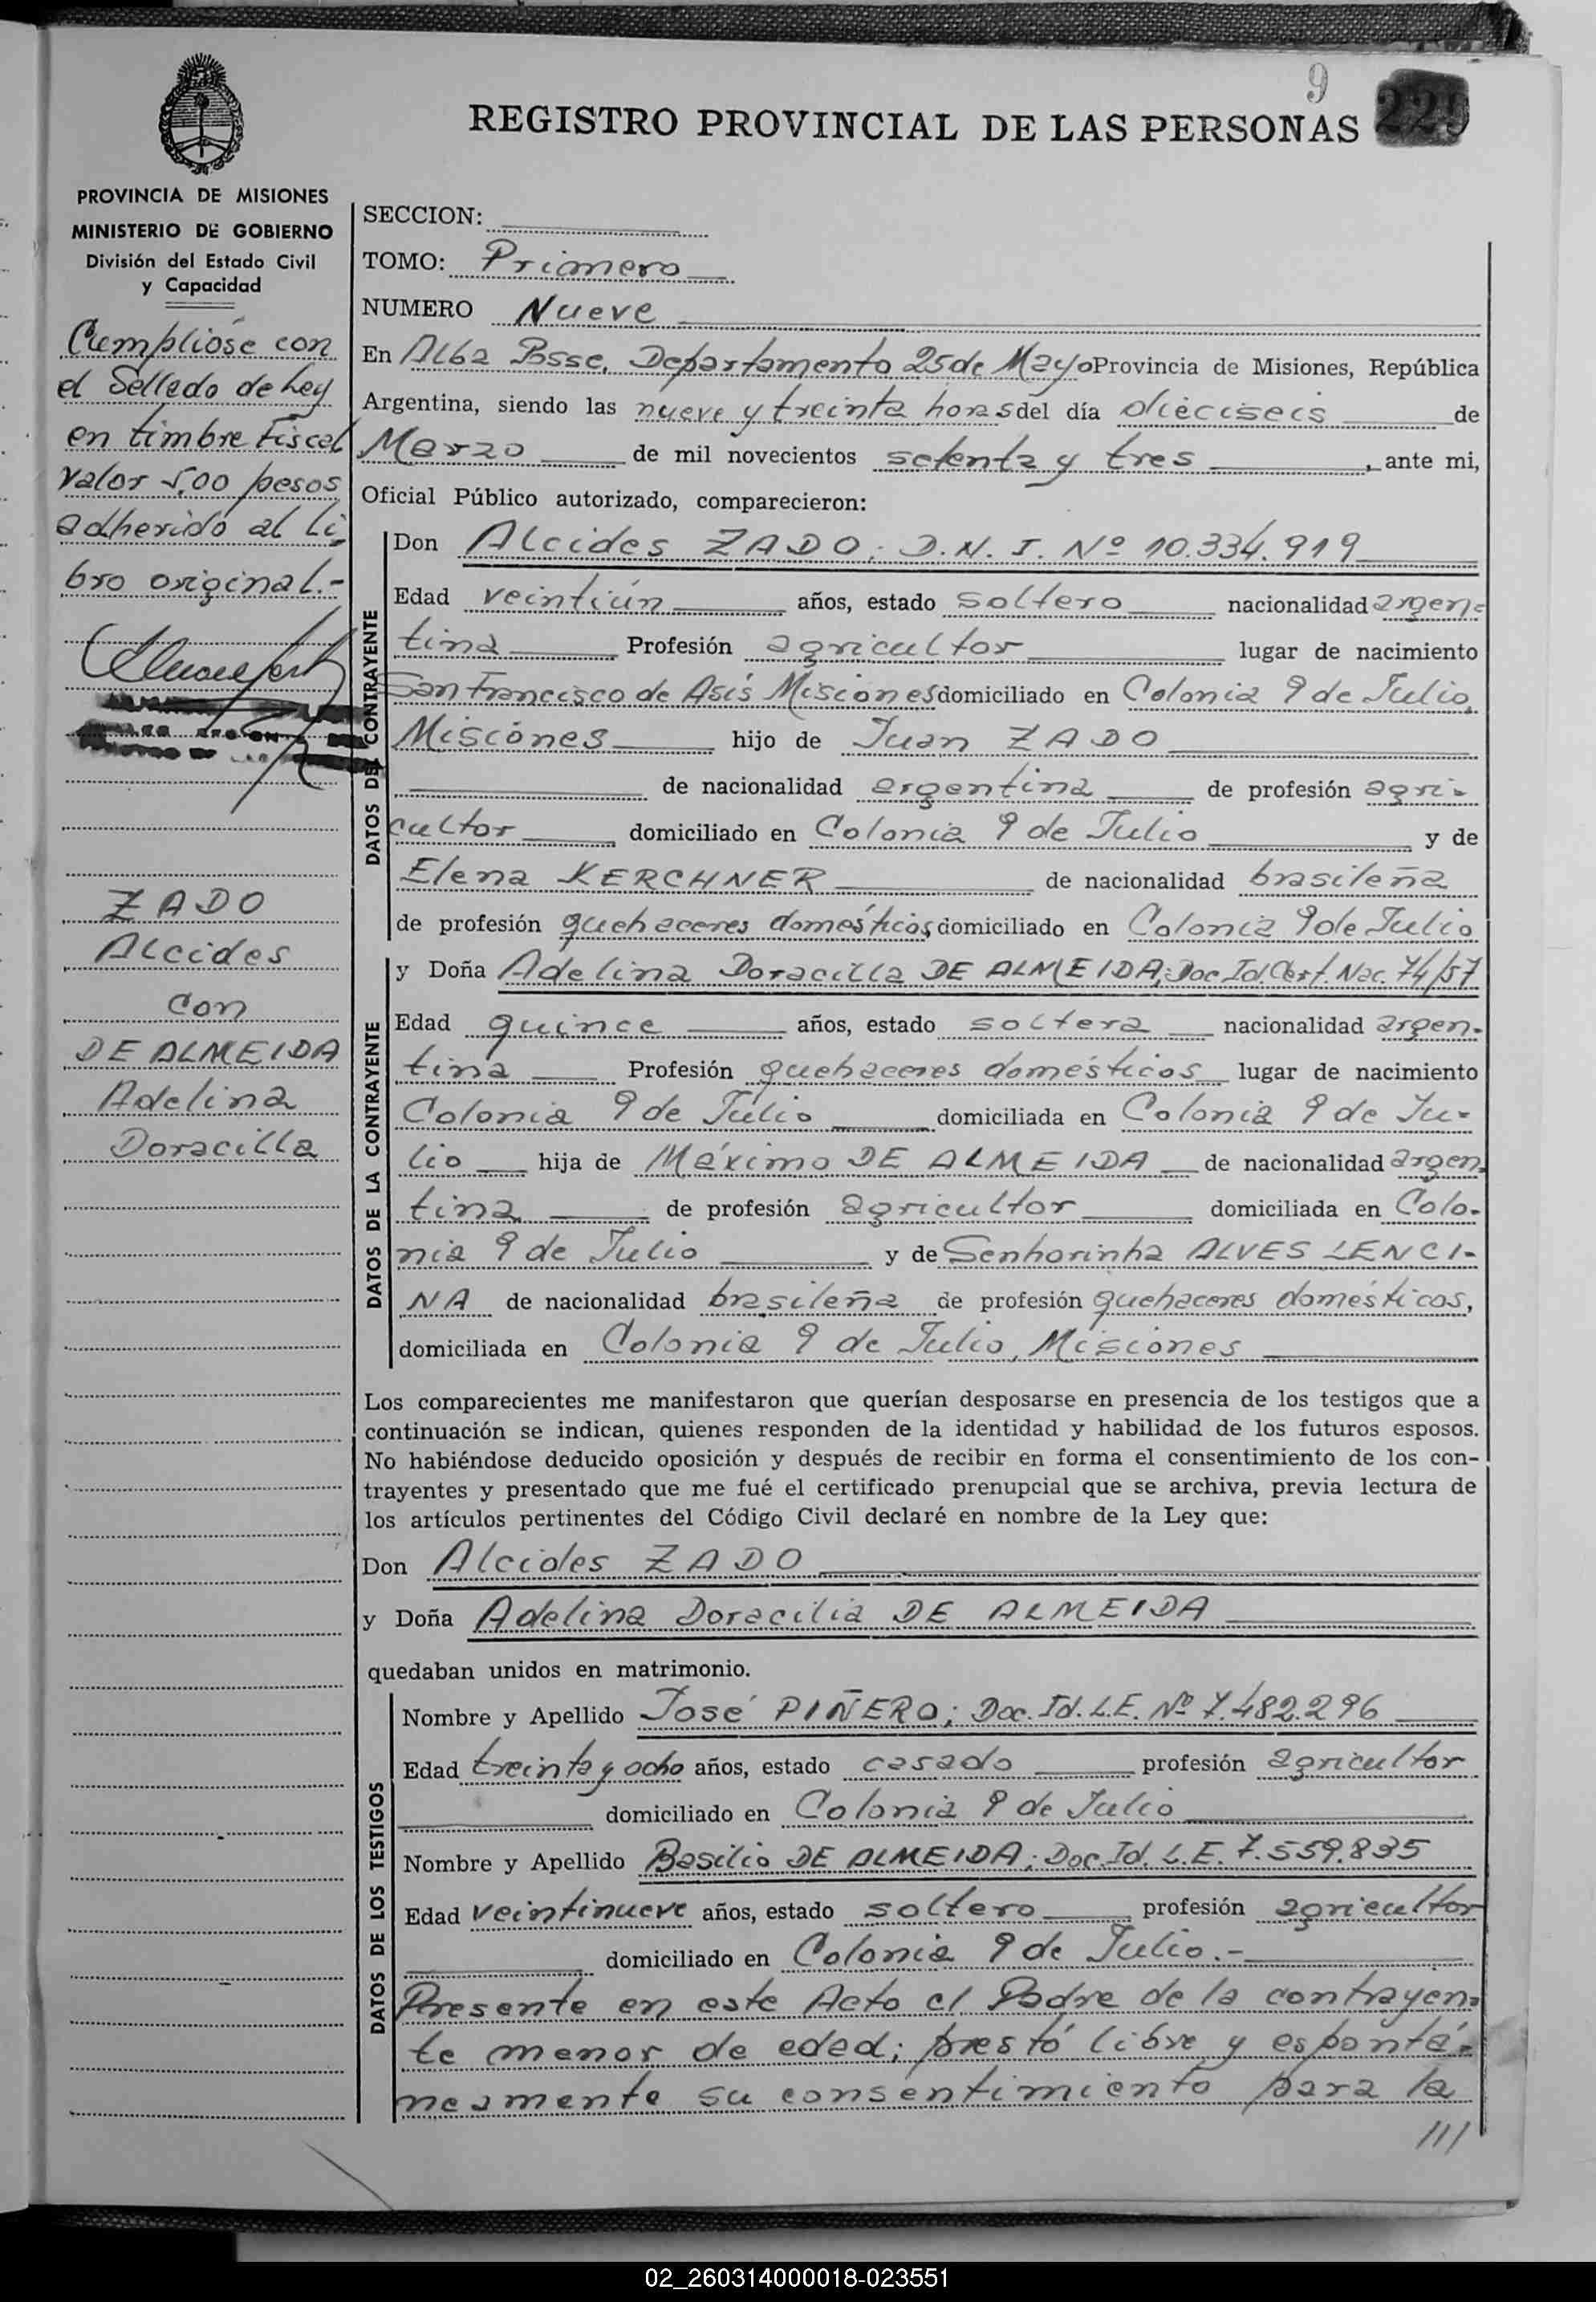 9
229
REGISTRO PROVINCIAL DE LAS PERSONAS
PROVINCIA DE MISIONES
MINISTERIO DE GOBIERNO
División del Estado Civil
y Capacidad
Cumplióse con
el Sellado de Ley
en timbre Fiscal
valor 5,00 pesos
adherido al li-
bro original.-
ZADO
Alcides
con
DE ALMEIDA
Adelina
Doracilla
SECCION:
TOMO: Primero
NUMERO Nueve
En Alba Posse, Departamento 25 de Mayo Provincia de Misiones, República
Argentina, siendo las nueve y treinta horas del día dieciseis de
Marzo de mil novecientos setenta y tres, ante mi,
Oficial Público autorizado, comparecieron:
DATOS DEL CONTRAYENTE
Don Alcides ZADO; D.N.I. Nº 10.334.919
Edad veintiún años, estado soltero nacionalidad argen-
tina Profesión agricultor lugar de nacimiento
San Francisco de Asís Misiones domiciliado en Colonia 9 de Julio,
Misiones hijo de Juan ZADO
de nacionalidad argentina de profesión agri-
cultor domiciliado en Colonia 9 de Julio y de
Elena KERCHNER de nacionalidad brasileña
de profesión quehaceres domésticos domiciliado en Colonia 9 de Julio
DATOS DE LA CONTRAYENTE
y Doña Adelina Doracilla DE ALMEIDA; Doc. Id. Cert. Nac. 74/57
Edad quince años, estado soltera nacionalidad argen-
tina Profesión quehaceres domésticos lugar de nacimiento
Colonia 9 de Julio domiciliada en Colonia 9 de Ju-
lio hija de Máximo DE ALMEIDA de nacionalidad argen-
tina de profesión agricultor domiciliada en Colo-
nia 9 de Julio y de Senhorinha ALVES LENCI-
NA de nacionalidad brasileña de profesión quehaceres domésticos,
domiciliada en Colonia 9 de Julio, Misiones
Los comparecientes me manifestaron que querían desposarse en presencia de los testigos que a
continuación se indican, quienes responden de la identidad y habilidad de los futuros esposos.
No habiéndose deducido oposición y después de recibir en forma el consentimiento de los con-
trayentes y presentado que me fué el certificado prenupcial que se archiva, previa lectura de
los artículos pertinentes del Código Civil declaré en nombre de la Ley que:
Don Alcides ZADO
y Doña Adelina Doracilia DE ALMEIDA
quedaban unidos en matrimonio.
DATOS DE LOS TESTIGOS
Nombre y Apellido José PIÑERO; Doc. Id. L.E. Nº 7.482.296
Edad treinta y ocho años, estado casado profesión agricultor
domiciliado en Colonia 9 de Julio
Nombre y Apellido Basilio DE ALMEIDA; Doc. Id. L.E. 7.559.835
Edad veintinueve años, estado soltero profesión agricultor
domiciliado en Colonia 9 de Julio.-
Presente en este Acto el Padre de la contrayen-
te menor de edad; prestó libre y espontá-
neamente su consentimiento para la
///
02_260314000018-023551